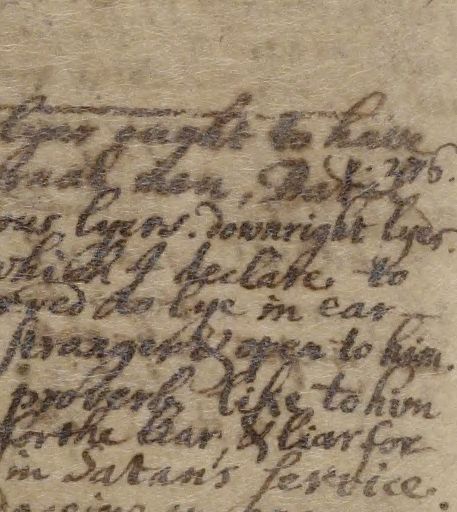 lyer ought to have
baal don, Bad. 376.
ous lyers. downright lyes.
which I declare to
do lye in ear
stranger & open to him.
proverb, like to him
for the liar, & liar for
in Satan's service.